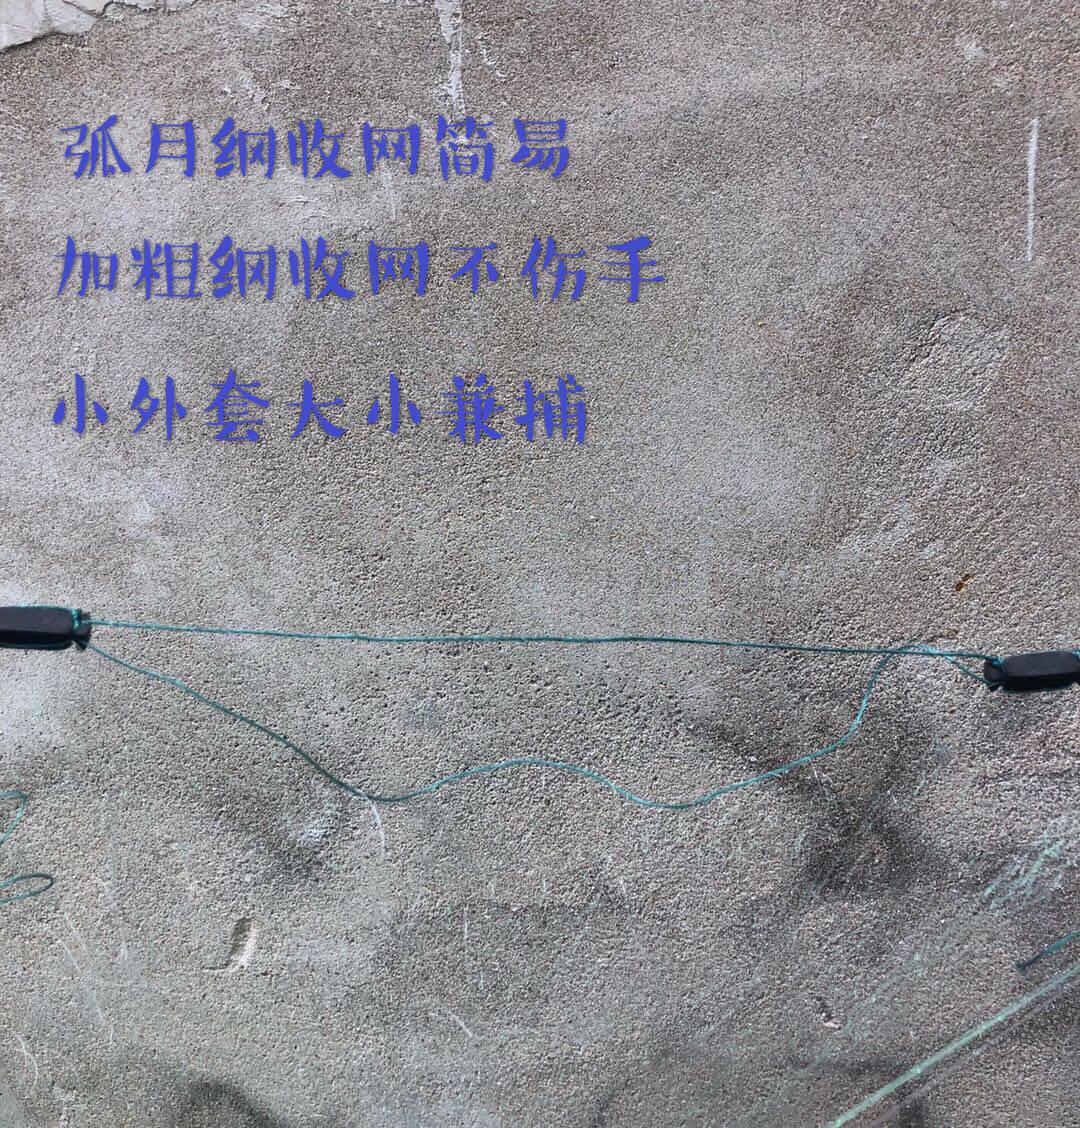 弧月纲收网简易
加粗纲收网不伤手
小外套大小兼捕